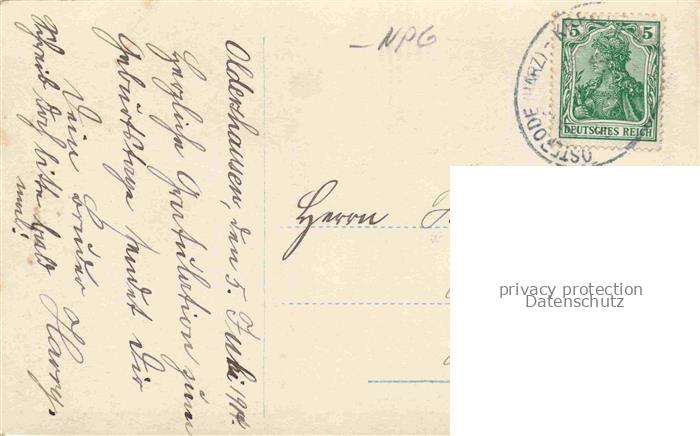 Oldershausen, den 5. Juli 1911.
Herzliche Gratulation zum
Geburtstage sendet Dir
Dein Bruder Harry.
Schreib doch bitte bald
mal!
NPG
5 5
DEUTSCHES REICH
OSTERODE (HARZ)-K
Herrn
privacy protection
Datenschutz